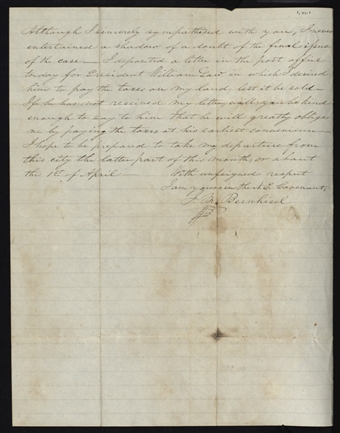 Although I sincerely sympathized with you, I never
entertained a shadow of a doubt of the final issue
of the case — I deposited a letter in the post office
to day for President William Law in which I desired
him to pay the taxes on my land, lest it be sold —
If he has not received my letter will you be kind
enough to say to him that he will greatly oblige
me by paying the taxes at his earliest convenience —
I hope to be prepared to take my departure from
this city the latter part of this month or about
the 1st of April
With unfeigned respect
I am yours in the Covenant,
J. M. Bernhisel